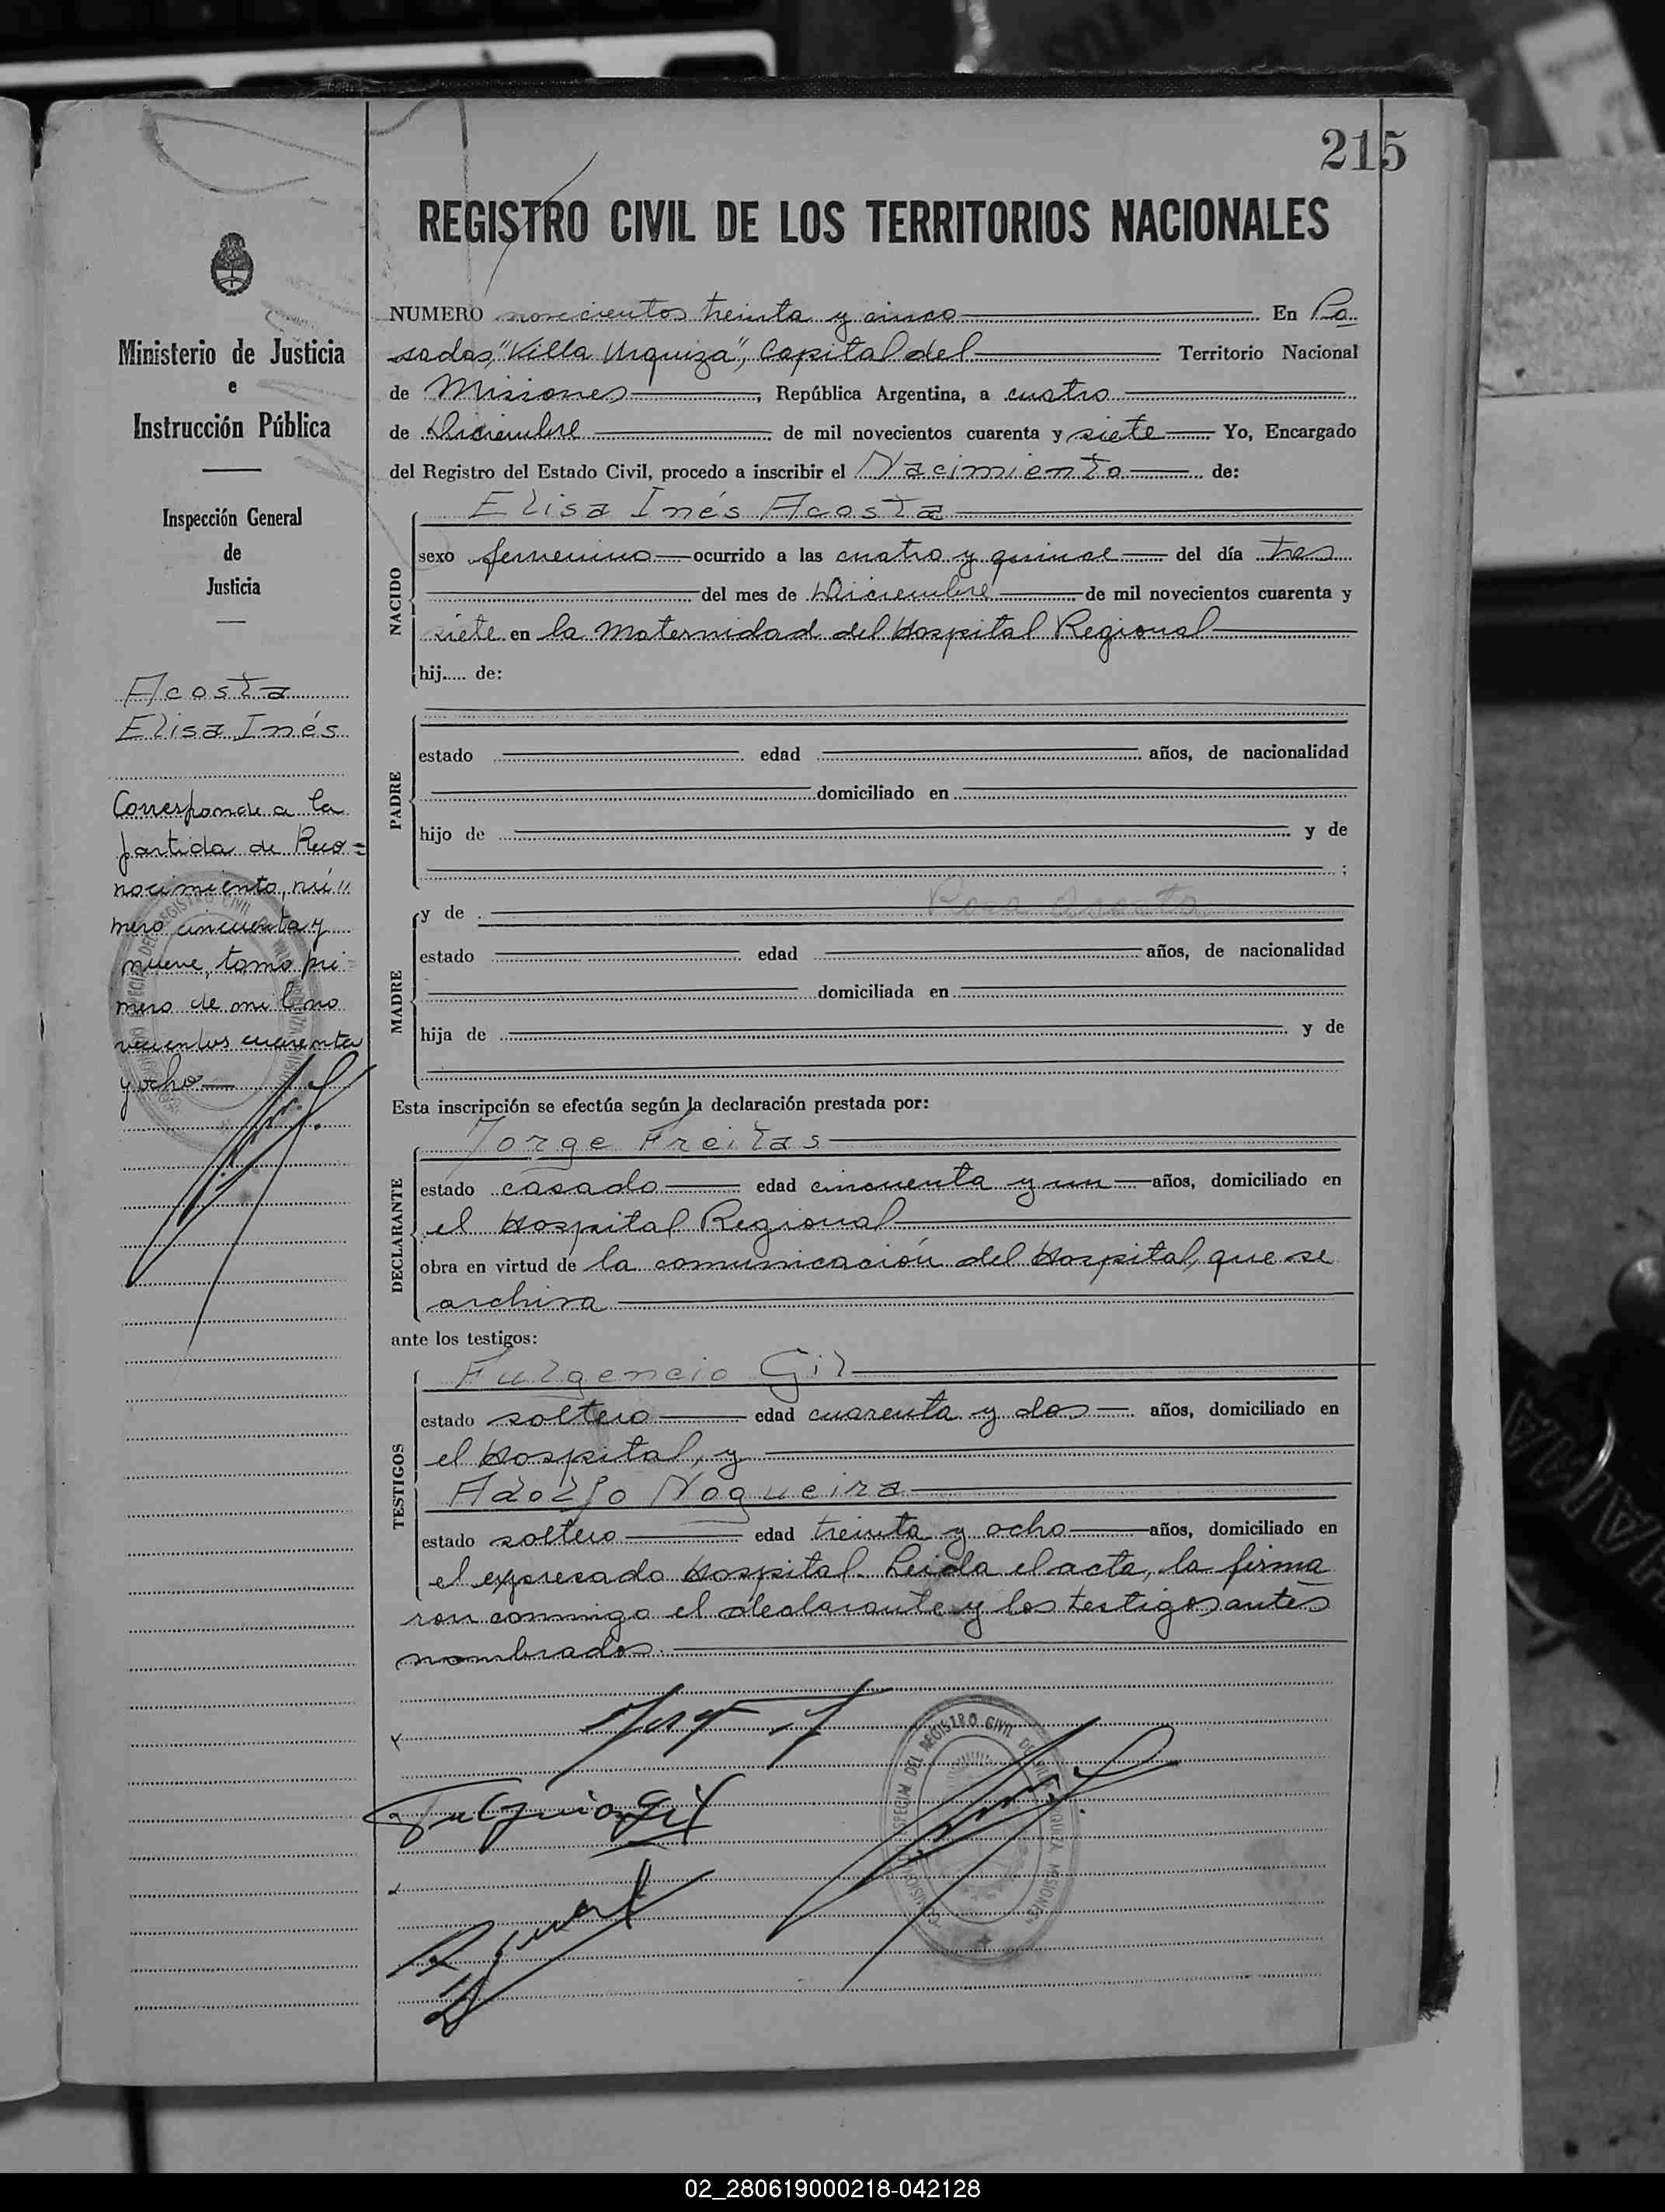 215
REGISTRO CIVIL DE LOS TERRITORIOS NACIONALES
Ministerio de Justicia
e
Instrucción Pública
Inspección General
de
Justicia
Acosta
Elisa Inés
Corresponde a la
partida de Reco=
nocimiento, nú"
mero cincuenta y
nueve, tomo pri=
mero de mil no
vecientos cuarenta
y ocho
NUMERO novecientos treinta y cinco En Po
sadas, "Villa Urquiza", Capital del Territorio Nacional
de Misiones, República Argentina, a cuatro
de Diciembre de mil novecientos cuarenta y siete Yo, Encargado
del Registro del Estado Civil, procedo a inscribir el Nacimiento de:
NACIDO
Elisa Inés Acosta
sexo femenino ocurrido a las cuatro y quince del día tres
del mes de Diciembre de mil novecientos cuarenta y
siete en la Maternidad del Hospital Regional
hij..... de:
PADRE
estado edad años, de nacionalidad
domiciliado en
hijo de y de
;
MADRE
y de Rosa Acosta
estado edad años, de nacionalidad
domiciliada en
hija de y de
Esta inscripción se efectúa según la declaración prestada por:
DECLARANTE
Jorge Freitas
estado casado edad cincuenta y un años, domiciliado en
el Hospital Regional
obra en virtud de la comunicación del Hospital, que se
archiva
ante los testigos:
TESTIGOS
Fulgencio Gil
estado soltero edad cuarenta y dos años, domiciliado en
el Hospital, y
Adolfo Nogueira
estado soltero edad treinta y ocho años, domiciliado en
el expresado Hospital. Leida el acta, la firma
ron conmigo el declarante y los testigos antes
nombrados.
Fulgencio Gil
DEL REGISTRO CIVIL
MISIONES
02_280619000218-042128